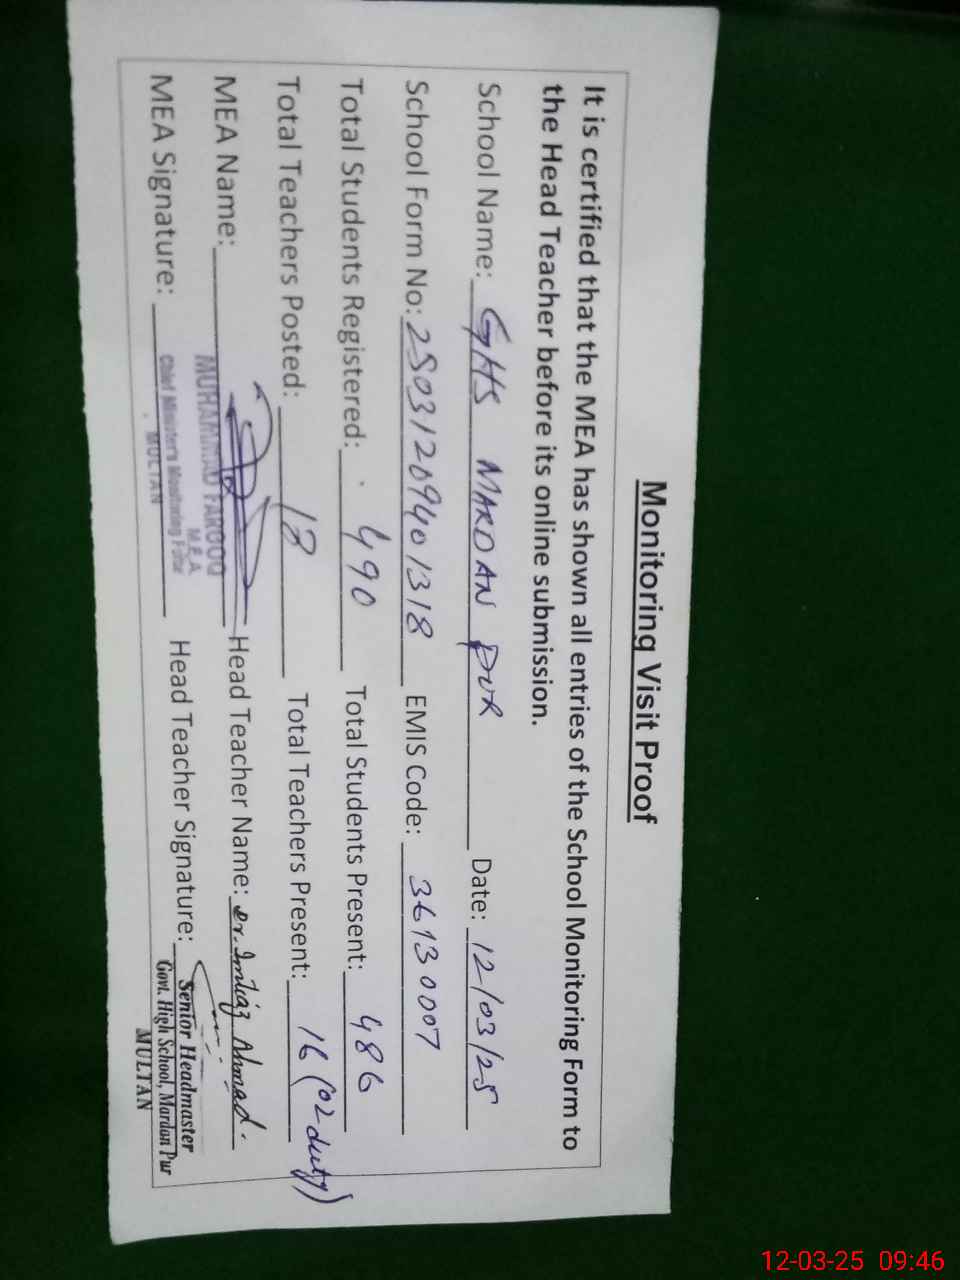 Monitoring Visit Proof
It is certified that the MEA has shown all entries of the School Monitoring Form to
the Head Teacher before its online submission.
School Name: GHS MARDAN PUR Date: 12/03/25
School Form No: 25031209401318 EMIS Code: 36130007
Total Students Registered: 490 Total Students Present: 486
Total Teachers Posted: 18 Total Teachers Present: 16 (02 duty)
MEA Name: MUHAMMAD FAROOQ Head Teacher Name: Dr. Imtiaz Ahmad.
M.E.A
MEA Signature: Chief Minister's Monitoring Force Head Teacher Signature:
MULTAN
Senior Headmaster
Govt. High School, Mardan Pur
MULTAN
12-03-25 09:46